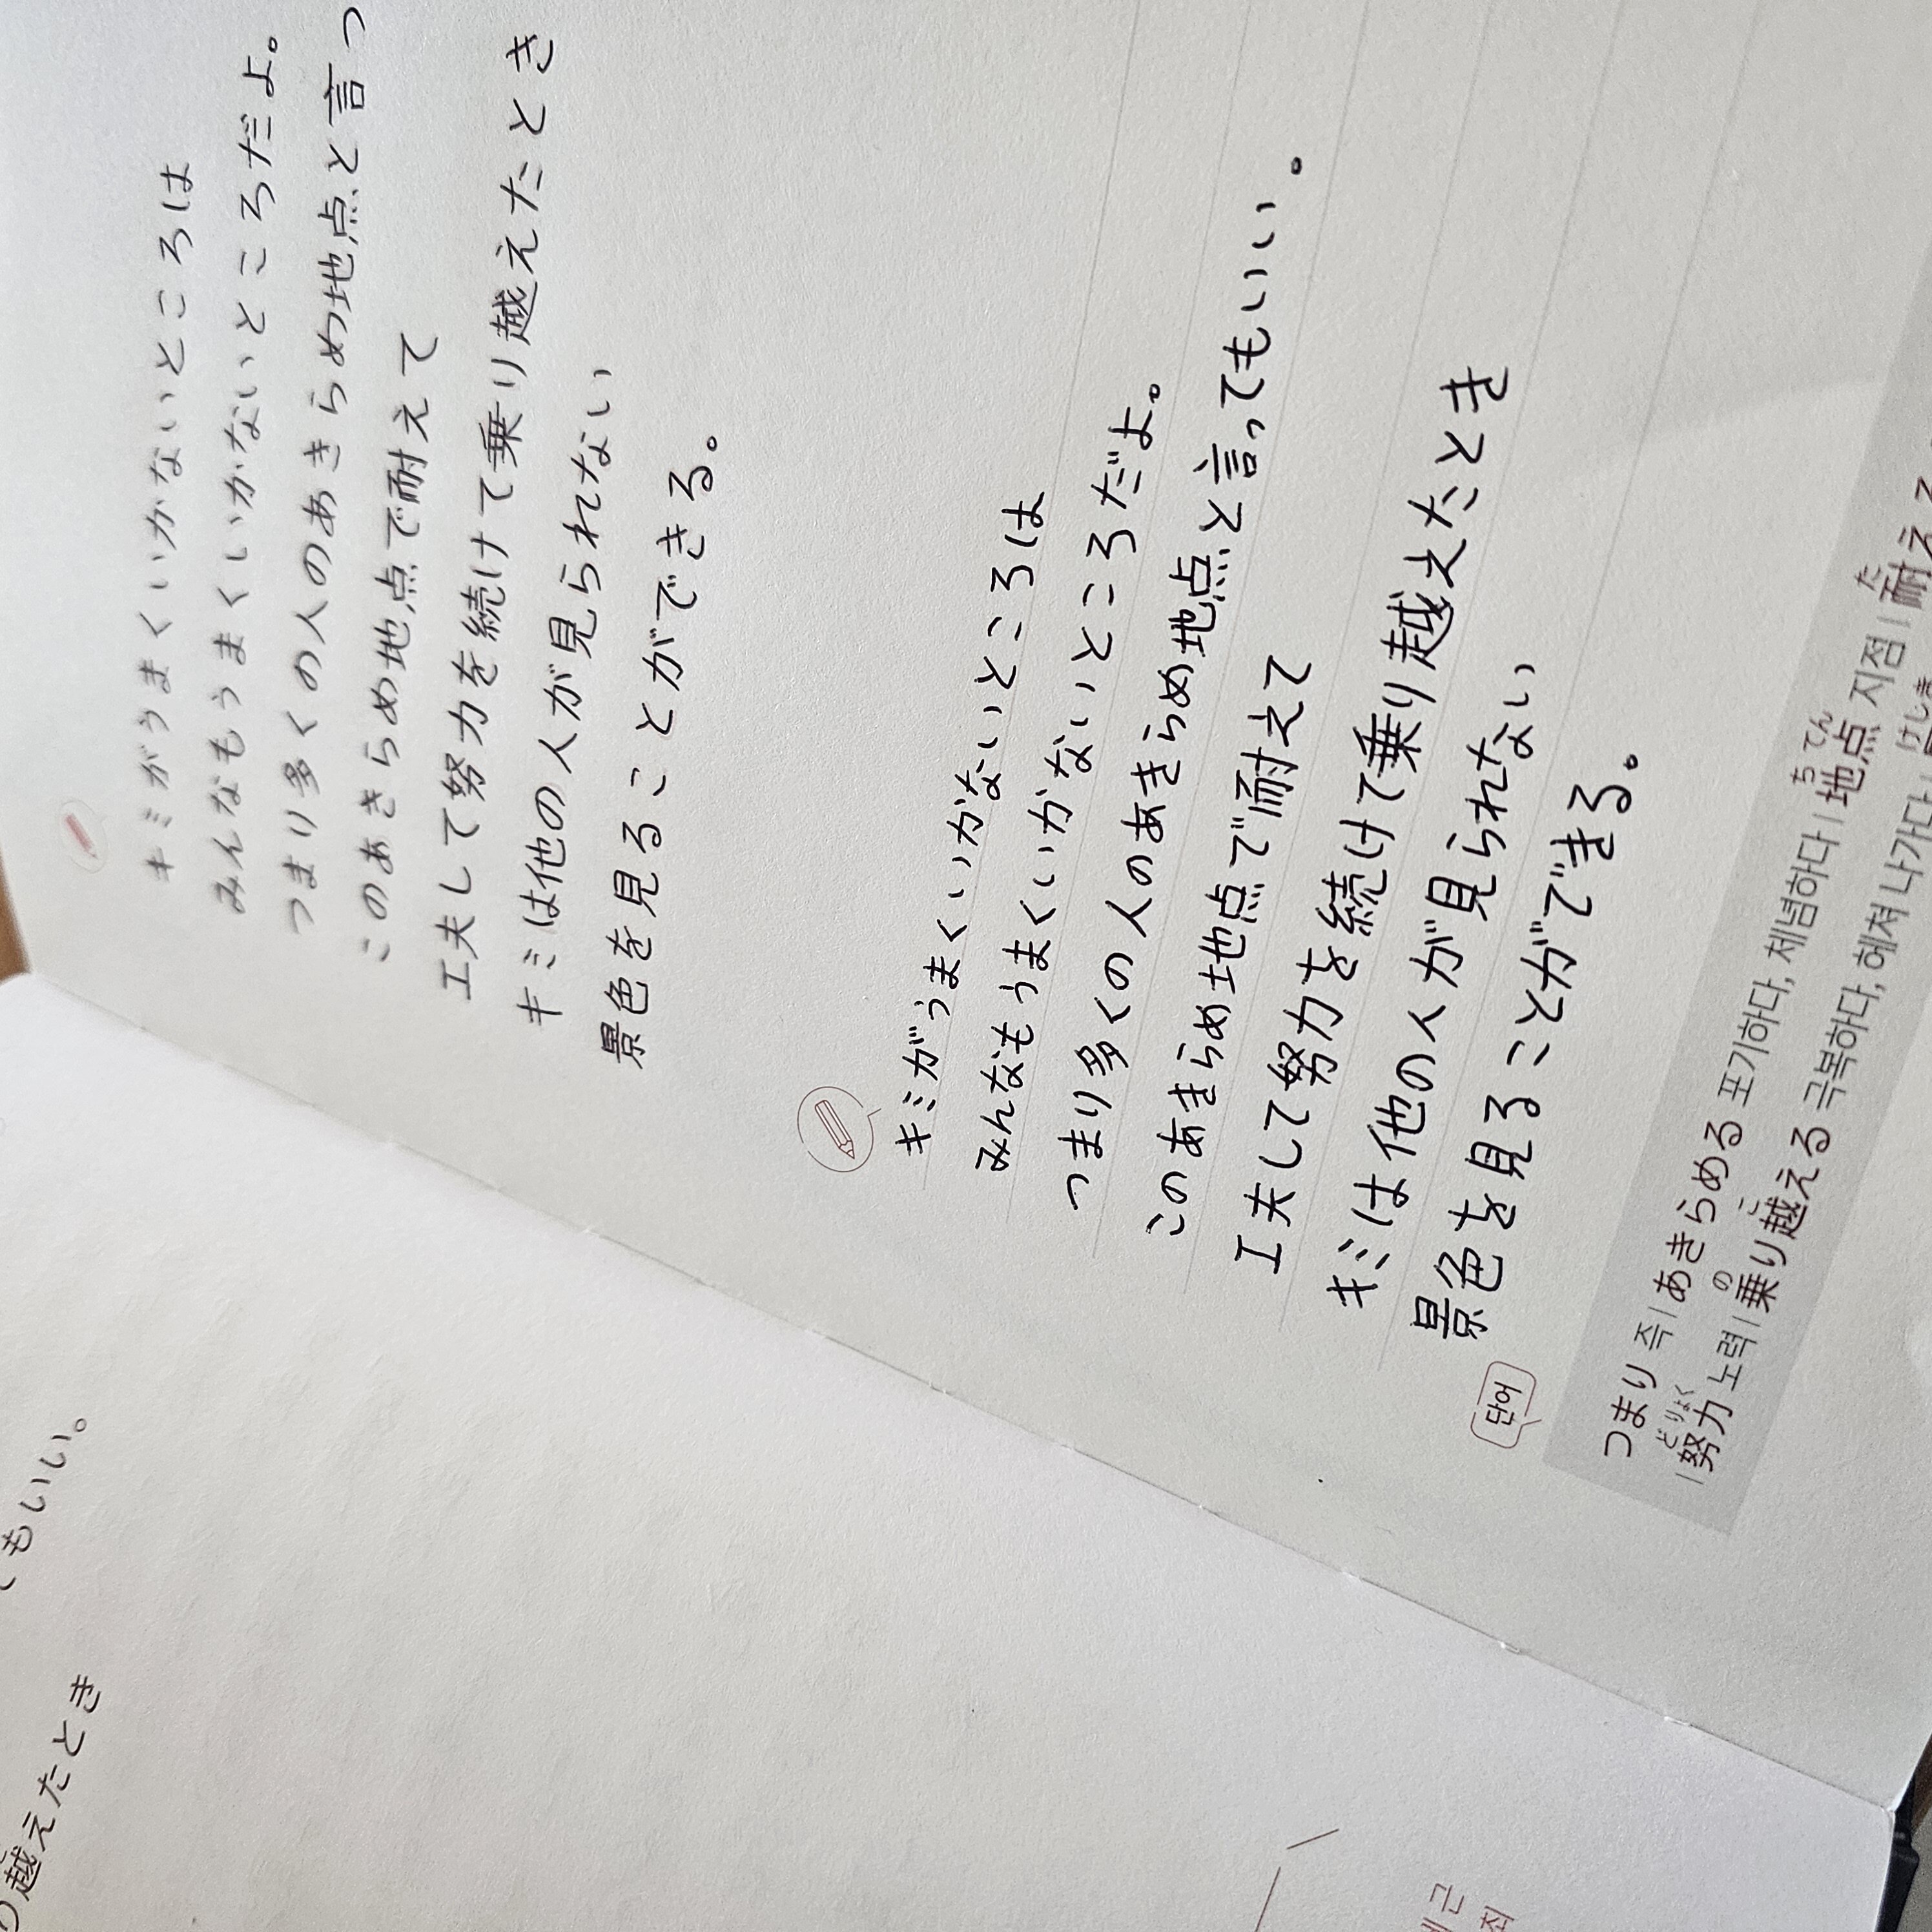 もいい。
越えたとき
キミがうまくいかないところは
みんなもうまくいかないところだよ。
つまり多くの人のあきらめ地点と言っ
このあきらめ地点で耐えて
工夫して努力を続けて乗り越えたとき
キミは他の人が見られない
景色を見ることができる。
キミがうまくいかないところは
みんなもうまくいかないところだよ。
つまり多くの人のあきらめ地点と言ってもいい。
このあきらめ地点で耐えて
工夫して努力を続けて乗り越えたとき
キミは他の人が見られない
景色を見ることができる。
단어
つまり 즉 | あきらめる 포기하다, 체념하다 | 地点 지점 | 耐える
| 努力 노력 | 乗り越える 극복하다, 헤쳐 나가다 |
どりょく
の
こ
ち てん
た
けしき